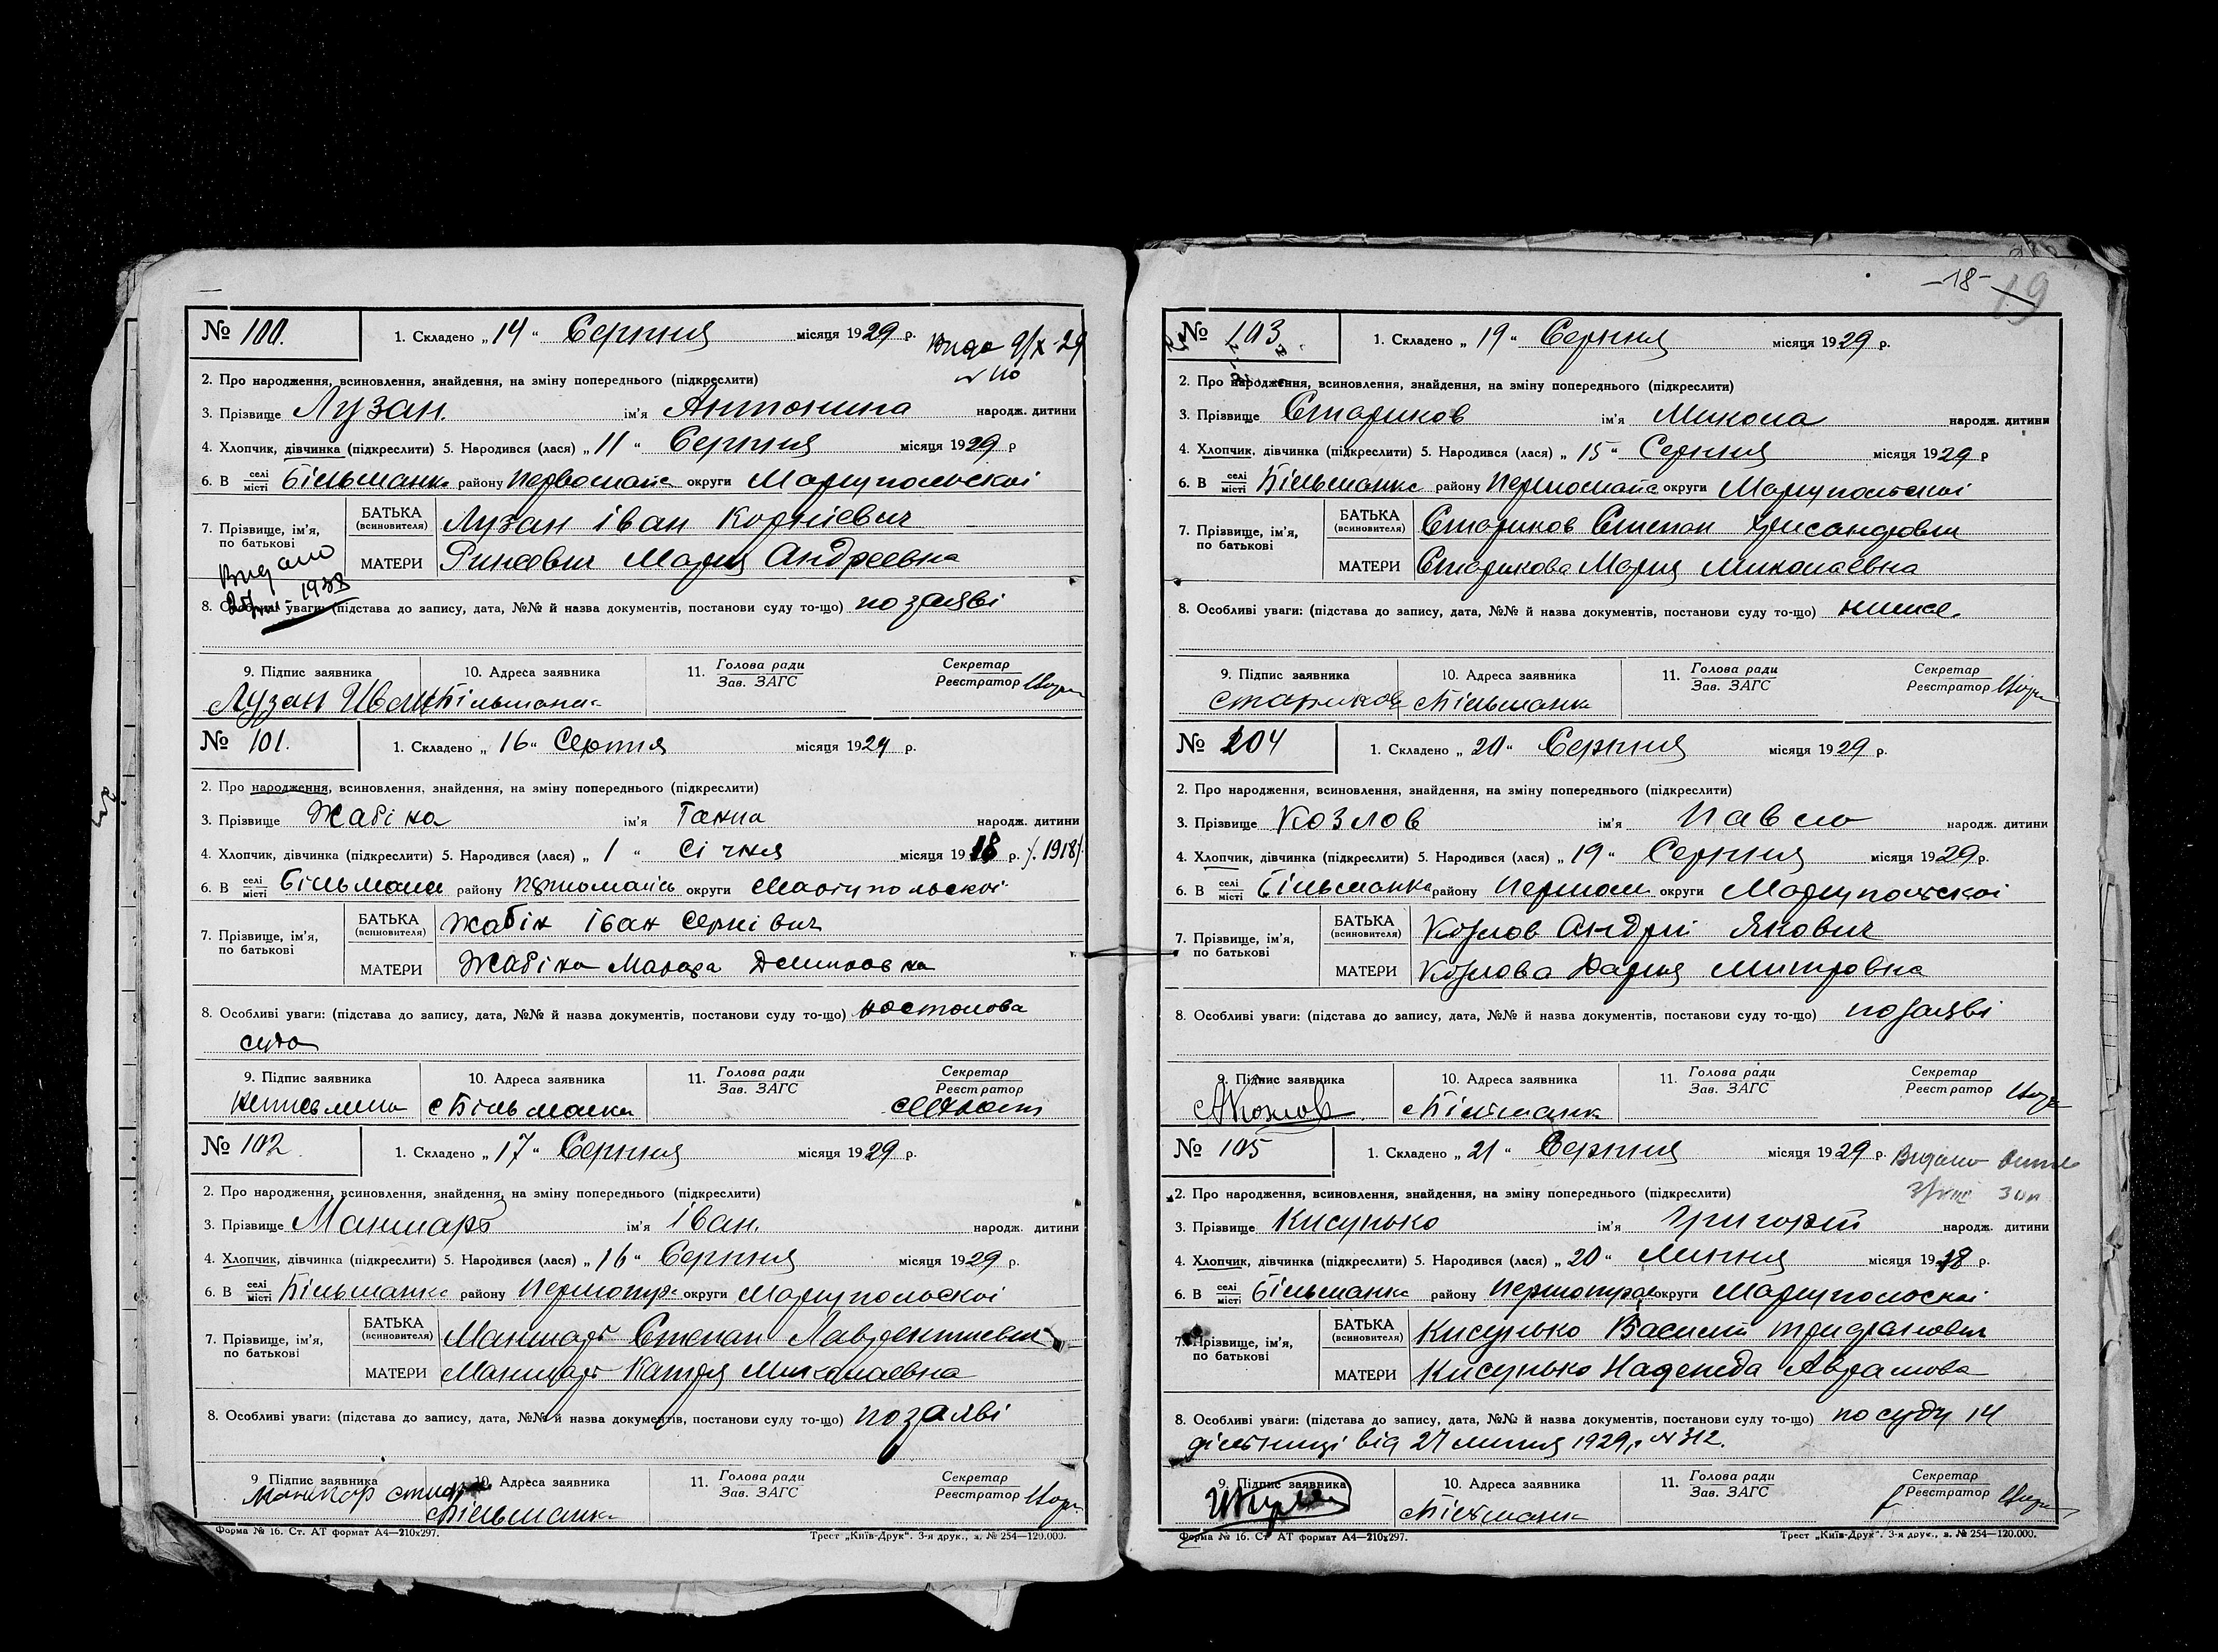 № 100. 1. Складено „14“ Серпня місяця 1929 р.
2. Про народження, всиновлення, знайдення, на зміну попереднього (підкреслити)
3. Прізвище Лузан. ім'я Антонина народж. дитини
4. Хлопчик, дівчинка (підкреслити) 5. Народився (лася) „11“ Серпня місяця 1929 р
6. В селі місті Більманка району Первомайс округи Маріупольскої
7. Прізвище, ім'я, по батькові БАТЬКА (всиновителя) Лузан Іван Корнієвич
МАТЕРИ Мария Андреевна
Видано
1938
8. Особливі уваги: (підстава до запису, дата, №№ й назва документів, постанови суду то-що) по заяві
9. Підпис заявника 10. Адреса заявника 11. Голова ради Зав. ЗАГС Секретар Реєстратор
Лузан Иван с Більманка
№ 101. 1. Складено „16“ Серпня місяця 1929 р.
2. Про народження, всиновлення, знайдення, на зміну попереднього (підкреслити)
3. Прізвище Жабіна ім'я Ганна народж. дитини
4. Хлопчик, дівчинка (підкреслити) 5. Народився (лася) „1“ Січня місяця 1918 р. /1918/
6. В селі місті Більманка району округи Маріупольскої
7. Прізвище, ім'я, по батькові БАТЬКА (всиновителя) Жабін Іван Сергієвич
МАТЕРИ Жабіна
8. Особливі уваги: (підстава до запису, дата, №№ й назва документів, постанови суду то-що) постанова
суда
9. Підпис заявника 10. Адреса заявника 11. Голова ради Зав. ЗАГС Секретар Реєстратор
с Більманка
№ 102. 1. Складено „17“ Серпня місяця 1929 р.
2. Про народження, всиновлення, знайдення, на зміну попереднього (підкреслити)
3. Прізвище ім'я Іван. народж. дитини
4. Хлопчик, дівчинка (підкреслити) 5. Народився (лася) „16“ Серпня місяця 1929 р.
6. В селі місті Більманка району округи Маріупольскої
7. Прізвище, ім'я, по батькові БАТЬКА (всиновителя) Степан Лаврентиевич
МАТЕРИ Катря Миколаевна
8. Особливі уваги: (підстава до запису, дата, №№ й назва документів, постанови суду то-що) по заяві
9. Підпис заявника 10. Адреса заявника 11. Голова ради Зав. ЗАГС Секретар Реєстратор
с Більманка
Форма № 16. Ст. АТ формат А4—210х297. Трест „Київ-Друк“. 3-я друк., з. № 254—120.000.
—18—
19
№ 103 1. Складено „19“ Серпня місяця 1929 р.
2. Про народження, всиновлення, знайдення, на зміну попереднього (підкреслити)
3. Прізвище Стариков ім'я Микола народж. дитини
4. Хлопчик, дівчинка (підкреслити) 5. Народився (лася) „15“ Серпня місяця 1929 р
6. В селі місті Більманка району Першомайс округи Маріупольскої
7. Прізвище, ім'я, по батькові БАТЬКА (всиновителя) Стариков Степан
МАТЕРИ Старикова Мария Миколаевна
8. Особливі уваги: (підстава до запису, дата, №№ й назва документів, постанови суду то-що)
9. Підпис заявника 10. Адреса заявника 11. Голова ради Зав. ЗАГС Секретар Реєстратор
Стариков с Більманка
№ 104 1. Складено „20“ Серпня місяця 1929 р.
2. Про народження, всиновлення, знайдення, на зміну попереднього (підкреслити)
3. Прізвище Козлов ім'я Павло народж. дитини
4. Хлопчик, дівчинка (підкреслити) 5. Народився (лася) „19“ Серпня місяця 1929 р.
6. В селі місті Більманка району Першом округи Маріупольскої
7. Прізвище, ім'я, по батькові БАТЬКА (всиновителя) Козлов Андрій Якович
МАТЕРИ Козлова Дария Митровна
8. Особливі уваги: (підстава до запису, дата, №№ й назва документів, постанови суду то-що) по заяві
9. Підпис заявника 10. Адреса заявника 11. Голова ради Зав. ЗАГС Секретар Реєстратор
АКозлов с Більманка
№ 105 1. Складено „21“ Серпня місяця 1929 р. Видано
2. Про народження, всиновлення, знайдення, на зміну попереднього (підкреслити)
3. Прізвище Кисунько ім'я Григорій народж. дитини
4. Хлопчик, дівчинка (підкреслити) 5. Народився (лася) „20“ Липня місяця 1918 р.
6. В селі місті Більманка району округи Маріупольскої
7. Прізвище, ім'я, по батькові БАТЬКА (всиновителя) Кисунько Василий Трифанович
МАТЕРИ Кисунько Надежда Аврамова
8. Особливі уваги: (підстава до запису, дата, №№ й назва документів, постанови суду то-що) по суду 14
дільниці від 27 липня 1929 р № 312.
9. Підпис заявника 10. Адреса заявника 11. Голова ради Зав. ЗАГС Секретар Реєстратор
с Більманка
Форма № 16. Ст. АТ формат А4—210х297. Трест „Київ-Друк“. 3-я друк., з. № 254—120.000.